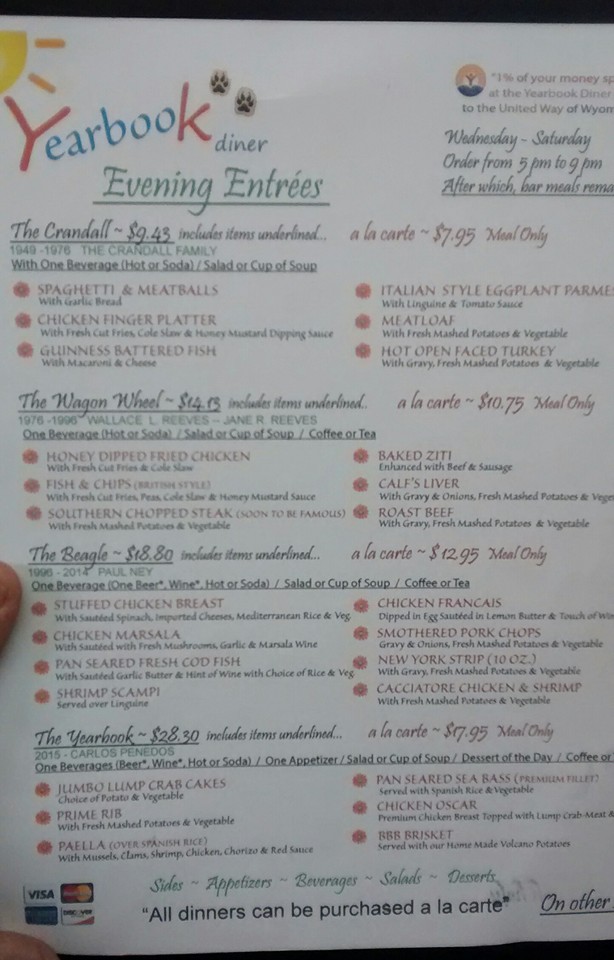 Yearbook diner
"1% of your money
at the Yearbook Diner
to the United Way of
Evening Entrées
Wednesday - Saturday
Order from 5 pm to 9 pm
After which, bar meals
The Crandall ~ $9.43 includes items underlined... a la carte ~ $7.95 Meal Only
1949 -1976 THE CRANDALL FAMILY
With One Beverage (Hot or Soda) / Salad or Cup of Soup
SPAGHETTI & MEATBALLS
With Garlic Bread
CHICKEN FINGER PLATTER
With Fresh Cut Fries, Cole Slaw & Honey Mustard Dipping Sauce
GUINNESS BATTERED FISH
With Macaroni & Cheese
ITALIAN STYLE EGGPLANT
With Linguine & Tomato Sauce
MEATLOAF
With Fresh Mashed Potatoes & Vegetable
HOT OPEN FACED TURKEY
With Gravy, Fresh Mashed Potatoes & Vegetable
The Wagon Wheel ~ $14.13 includes items underlined.. a la carte ~ $10.75 Meal Only
1976 -1996 WALLACE L. REEVES – JANE R. REEVES
One Beverage (Hot or Soda) / Salad or Cup of Soup / Coffee or Tea
HONEY DIPPED FRIED CHICKEN
With Fresh Cut Fries & Cole Slaw
FISH & CHIPS (BRITISH STYLE)
With Fresh Cut Fries, Peas, Cole Slaw & Honey Mustard Sauce
SOUTHERN CHOPPED STEAK (SOON TO BE FAMOUS)
With Fresh Mashed Potatoes & Vegetable
BAKED ZITI
Enhanced with Beef & Sausage
CALF'S LIVER
With Gravy & Onions, Fresh Mashed Potatoes &
ROAST BEEF
With Gravy, Fresh Mashed Potatoes & Vegetable
The Beagle ~ $18.80 includes items underlined... a la carte ~ $12.95 Meal Only
1996 - 2014 PAUL NEY
One Beverage (One Beer*, Wine*, Hot or Soda) / Salad or Cup of Soup / Coffee or Tea
STUFFED CHICKEN BREAST
With Sautéed Spinach, Imported Cheeses, Mediterranean Rice & Veg.
CHICKEN MARSALA
With Sautéed with Fresh Mushrooms, Garlic & Marsala Wine
PAN SEARED FRESH COD FISH
With Sautéed Garlic Butter & Hint of Wine with Choice of Rice & Veg
SHRIMP SCAMPI
Served over Linguine
CHICKEN FRANCAIS
Dipped in Egg Sautéed in Lemon Butter & Touch of
SMOTHERED PORK CHOPS
Gravy & Onions, Fresh Mashed Potatoes & Vegetable
NEW YORK STRIP (10 OZ.)
With Gravy, Fresh Mashed Potatoes & Vegetable
CACCIATORE CHICKEN & SHRIMP
With Fresh Mashed Potatoes & Vegetable
The Yearbook ~ $28.30 includes items underlined... a la carte ~ $17.95 Meal Only
2015 - CARLOS PENEDOS
One Beverages (Beer*, Wine*, Hot or Soda) / One Appetizer / Salad or Cup of Soup / Dessert of the Day / Coffee or
JUMBO LUMP CRAB CAKES
Choice of Potato & Vegetable
PRIME RIB
With Fresh Mashed Potatoes & Vegetable
PAELLA (OVER SPANISH RICE)
With Mussels, Clams, Shrimp, Chicken, Chorizo & Red Sauce
PAN SEARED SEA BASS (PREMIUM FILLET)
Served with Spanish Rice & Vegetable
CHICKEN OSCAR
Premium Chicken Breast Topped with Lump Crab-Meat &
BBB BRISKET
Served with our Home Made Volcano Potatoes
Sides ~ Appetizers ~ Beverages ~ Salads ~ Desserts
VISA MasterCard
DISCOVER
"All dinners can be purchased a la carte" On other